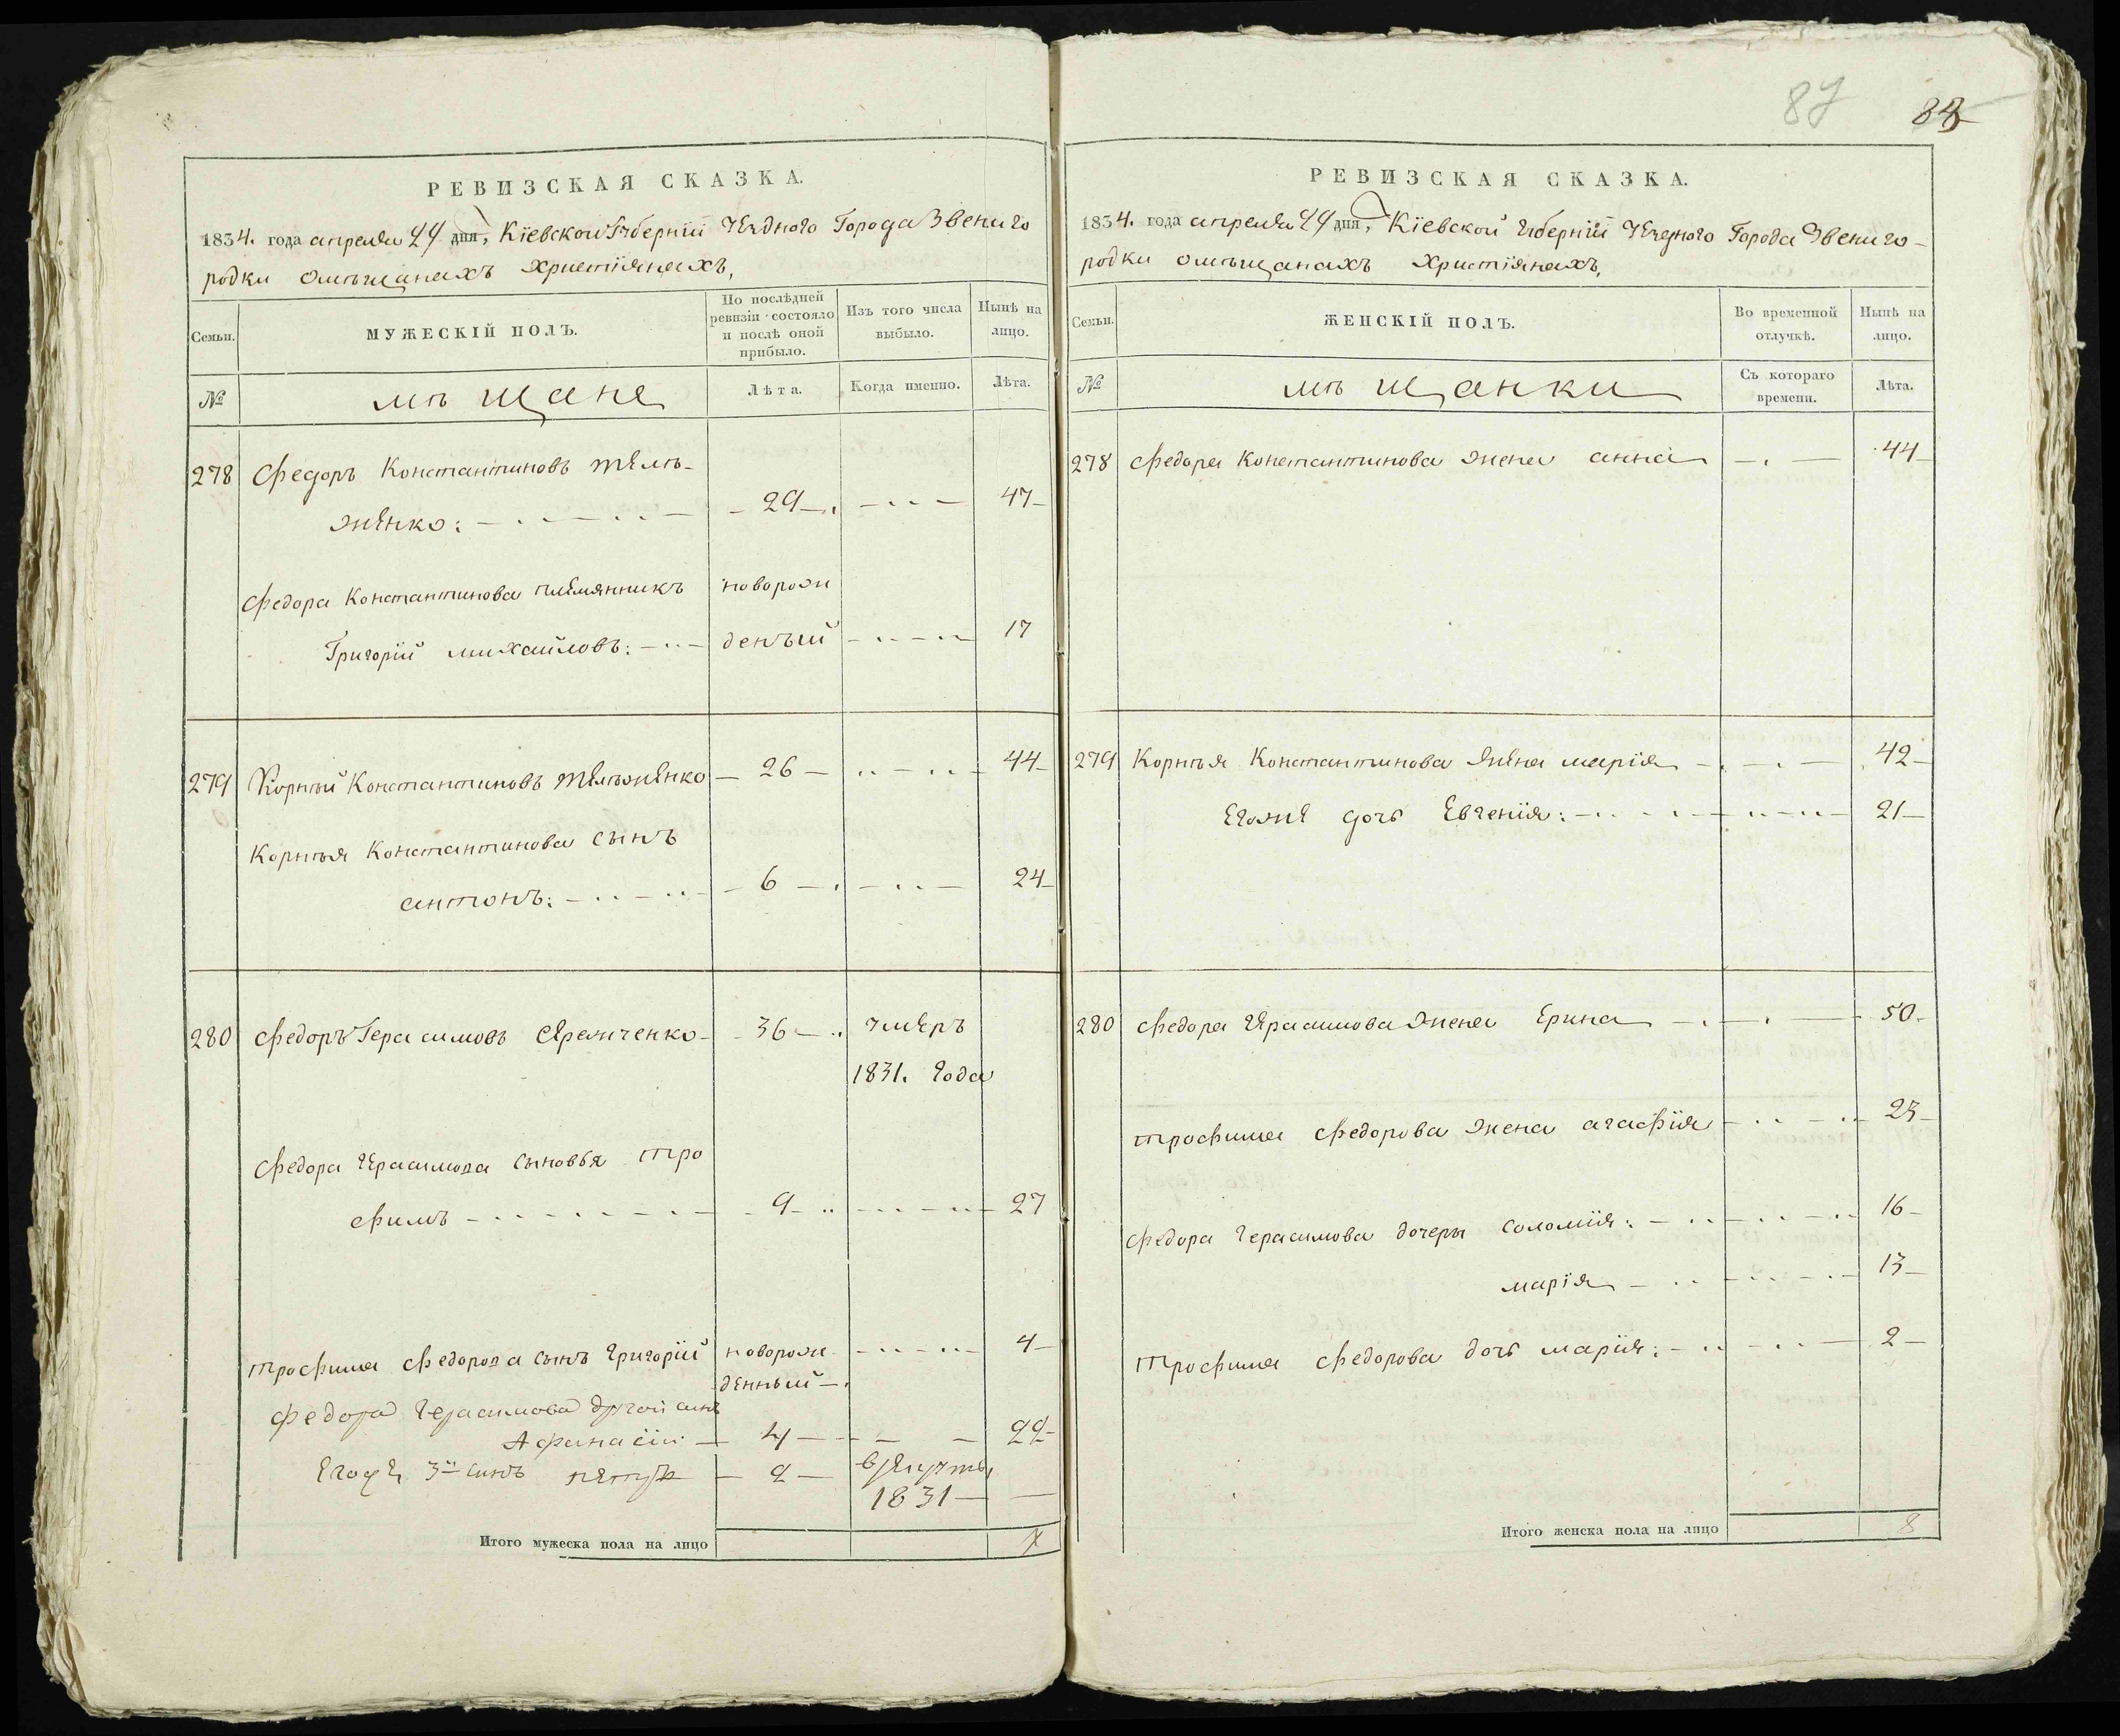 87 88
РЕВИЗСКАЯ СКАЗКА.
1834. года апреля 24 дня, Кіевской Губерніи Уезднаго Города Звениго
родки омѣщанахъ христіянахъ,
Семьи.
МУЖЕСКІЙ ПОЛЪ.
По послѣдней ревизіи состояло и послѣ оной прибыло.
Изъ того числа выбыло.
Нынѣ на лицо.
№
мѣщане
Лѣта.
Когда именно.
Лѣта.
278 Федоръ Константиновъ
29 47
Федора Константинова племянникъ новорож
Григорій михайловъ: денъый 17
279 Корнѣй Константиновъ 26 44
Корнѣя Константинова сынъ
антонъ: 6 24
280 федоръ Герасимовъ 36 умеръ
1831. года
федора Герасимова сыновья тро
фимъ 9 27
трофима федорова сынъ григорій новорож 4
денный
федора Герасимова другой сынъ
Афанасій 4 22
Егоже 3й сынъ петръ 2
1831
Итого мужеска пола на лицо 7
РЕВИЗСКАЯ СКАЗКА.
1834. года апреля 24 дня, Кіевской Губерніи Уезднаго Города Звениго-
родки омѣщанахъ христіянахъ,
Семьи.
ЖЕНСКІЙ ПОЛЪ.
Во временной отлучкѣ.
Нынѣ на лицо.
№
мѣщанки
Съ котораго времени.
Лѣта.
278 федора Константинова жена анна 44
279 Корнѣя Константинова жена марія 42
Егоже дочь Евгенія: 21
280 федора Герасимова жена Ерина 50
трофима федорова жена агафія 23
федора Герасимова дочеры соломія: 16
марія 13
трофима федорова дочь марія: 2
Итого женска пола на лицо 8